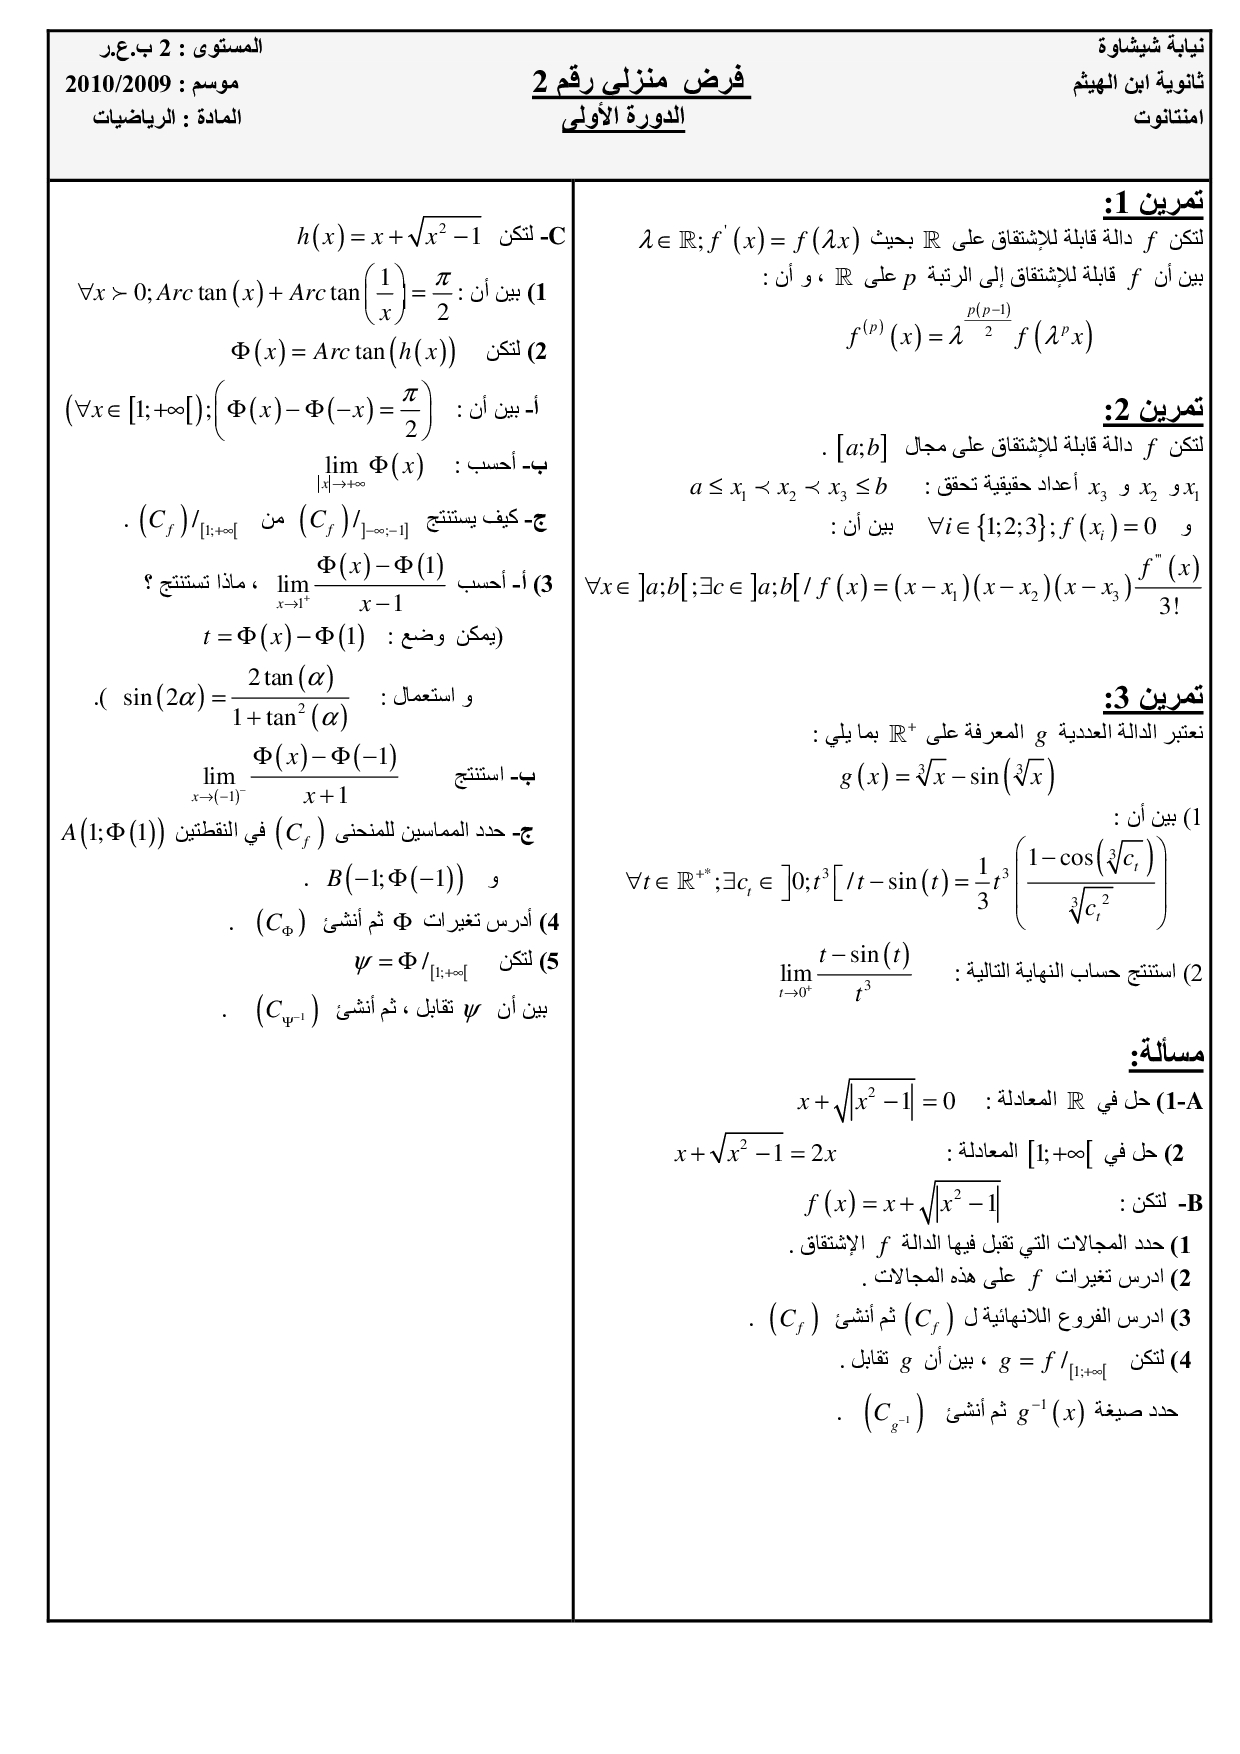 نيابة شيشاوة
المستوى : 2 ب.ع.ر
ثانوية ابن الهيثم
فرض منزلي رقم 2
موسم : 2010/2009
امنتانوت
الدورة الأولى
المادة : الرياضيات
تمرين 1:
لتكن f دالة قابلة للإشتقاق على ℝ بحيث λ ∈ ℝ; f'(x) = f(λx)
بين أن f قابلة للإشتقاق إلى الرتبة p على ℝ ، و أن :
f^(p)(x) = λ^(p(p−1)/2) f(λ^p x)
تمرين 2:
لتكن f دالة قابلة للإشتقاق على مجال [a;b] .
x₁ و x₂ و x₃ أعداد حقيقية تحقق : a ≤ x₁ ≺ x₂ ≺ x₃ ≤ b
و ∀i ∈ {1;2;3}; f(xᵢ) = 0 بين أن :
∀x ∈ ]a;b[; ∃c ∈ ]a;b[ / f(x) = (x − x₁)(x − x₂)(x − x₃) f'''(x)/3!
تمرين 3:
نعتبر الدالة العددية g المعرفة على ℝ⁺ بما يلي :
g(x) = ∛x − sin(∛x)
1) بين أن :
∀t ∈ ℝ⁺*; ∃c_t ∈ ]0;t³[ / t − sin(t) = 1/3 t³ ((1 − cos(∛c_t))/∛c_t²)
2) استنتج حساب النهاية التالية : lim_{t→0⁺} (t − sin(t))/t³
مسألة:
A-1) حل في ℝ المعادلة : x + √|x² − 1| = 0
2) حل في [1;+∞[ المعادلة : x + √(x² − 1) = 2x
B- لتكن : f(x) = x + √|x² − 1|
1) حدد المجالات التي تقبل فيها الدالة f الإشتقاق .
2) ادرس تغيرات f على هذه المجالات .
3) ادرس الفروع اللانهائية ل (C_f) ثم أنشئ (C_f) .
4) لتكن g = f /[1;+∞[ ، بين أن g تقابل .
حدد صيغة g⁻¹(x) ثم أنشئ (C_g⁻¹) .
C- لتكن h(x) = x + √(x² − 1)
1) بين أن : ∀x ≻ 0; Arc tan(x) + Arc tan(1/x) = π/2
2) لتكن Φ(x) = Arc tan(h(x))
أ- بين أن : (∀x ∈ [1;+∞[); (Φ(x) − Φ(−x) = π/2)
ب- أحسب : lim_{|x|→+∞} Φ(x)
ج- كيف يستنتج (C_f)/]−∞;−1] من (C_f)/[1;+∞[ .
3) أ- أحسب lim_{x→1⁺} (Φ(x) − Φ(1))/(x − 1) ، ماذا تستنتج ؟
(يمكن وضع : t = Φ(x) − Φ(1)
و استعمال : sin(2α) = 2tan(α)/(1 + tan²(α)) ).
ب- استنتج lim_{x→(−1)⁻} (Φ(x) − Φ(−1))/(x + 1)
ج- حدد المماسين للمنحنى (C_f) في النقطتين A(1;Φ(1))
و B(−1;Φ(−1)) .
4) أدرس تغيرات Φ ثم أنشئ (C_Φ) .
5) لتكن ψ = Φ /[1;+∞[
بين أن ψ تقابل ، ثم أنشئ (C_Ψ⁻¹) .